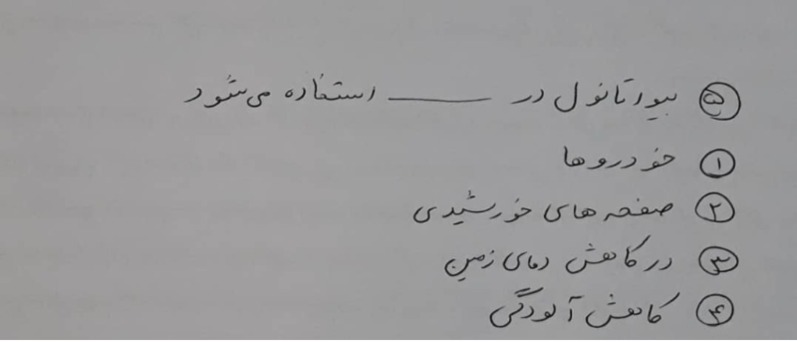 ۵ بیواتانول در ____ استفاده می‌شود
۱ خودروها
۲ صفحه های خورشیدی
۳ در کاهش دمای زمین
۴ کاهش آلودگی